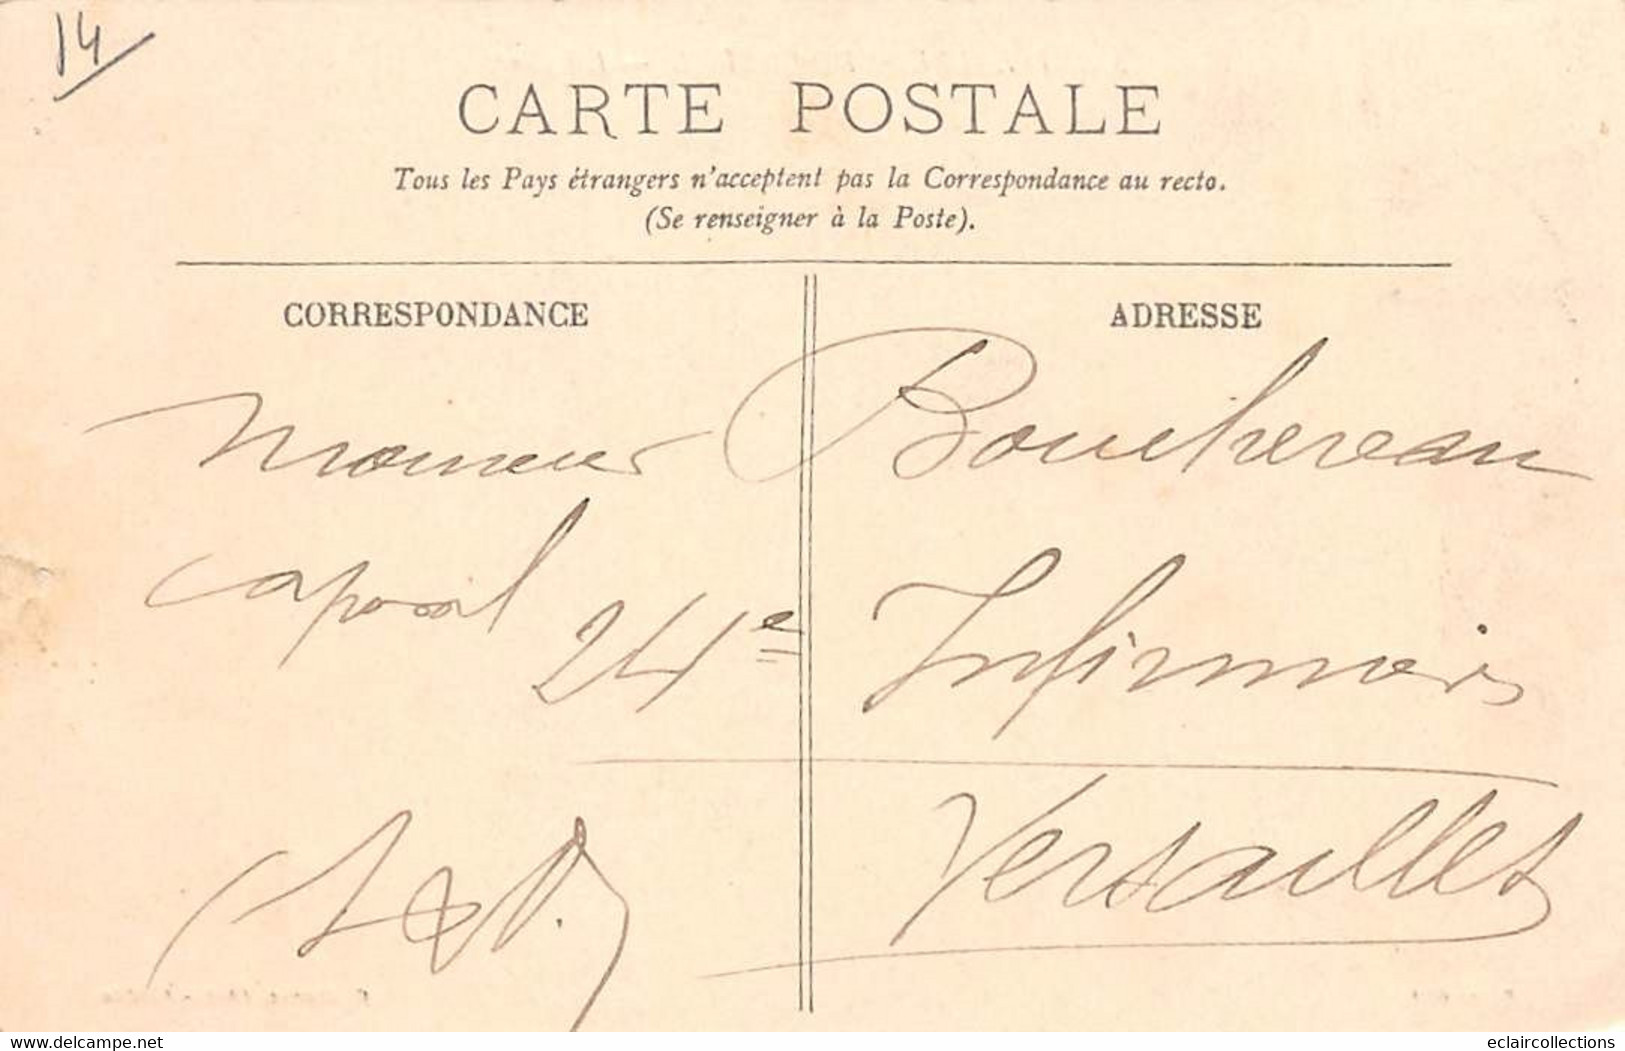 14
CARTE POSTALE
Tous les Pays étrangers n'acceptent pas la Correspondance au recto.
(Se renseigner à la Poste).
CORRESPONDANCE
ADRESSE
Monsieur Bouchereau
caporal 24e Infirmiers
Versailles
eclaircollections